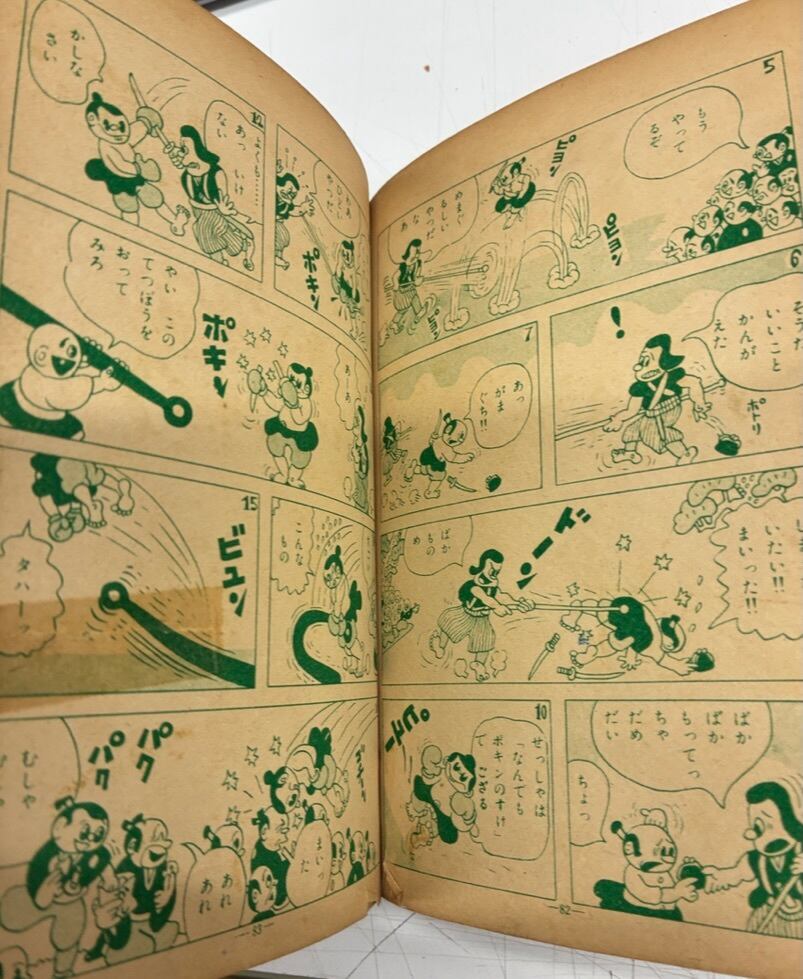 5
もう
やって
るぞ
ピヨン
ピヨン
ピヨン
めまぐ
るしい
やつだ
な
あ
6
そうだ
いいこと
かんが
えた
ポトリ
!
7
あっ
がま
ぐち!!
いたい!!
まいった!!
ズイーン
ばか
もの
め
ばか
ばか
もってっ
ちゃ
だめ
だい
ちょっ
10
せっしゃは
「なんでも
ポキンのすけ」
で ござる
—82—
やつだ
ポキン
12
よくも……
あっ いけ
ない
かしな
さい
あーあ
ポキン
やい この
てつぼうを
おって
みろ
こんな
もの
15
ビュン
タハーッ
まいっ
た
あれ
あれ
パク
パク
むしゃ
—83—